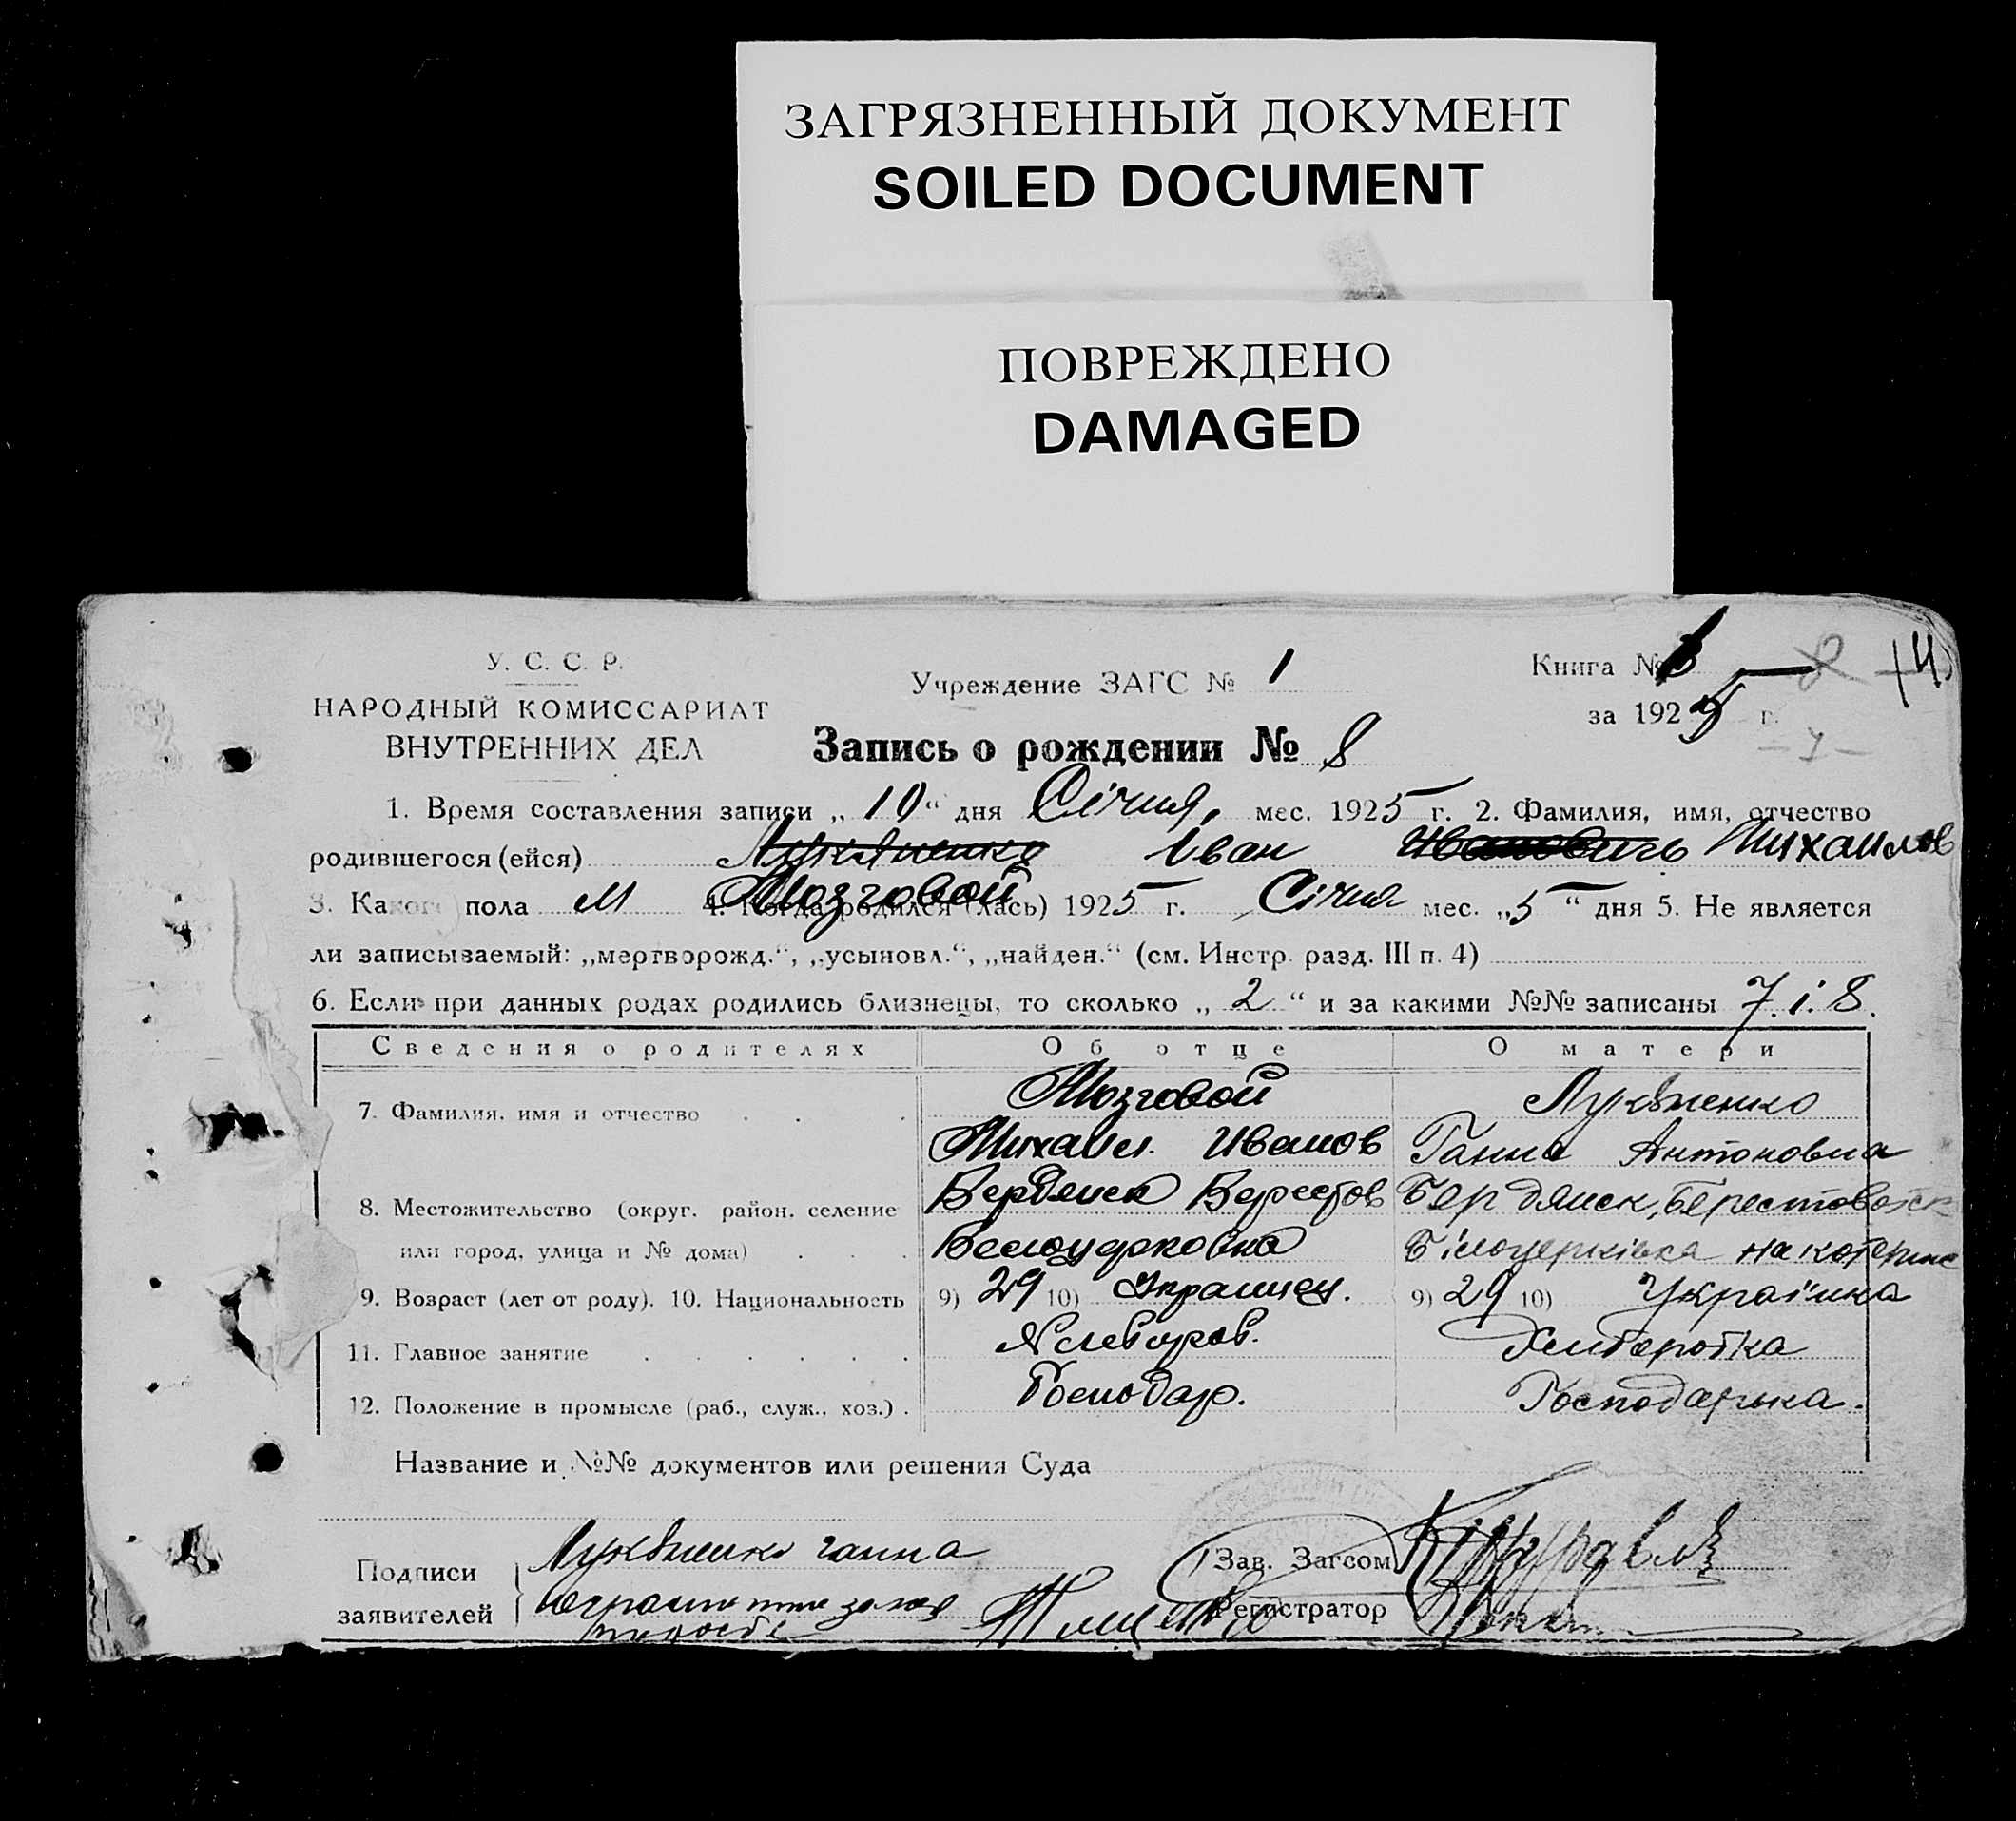 ЗАГРЯЗНЕННЫЙ ДОКУМЕНТ
SOILED DOCUMENT
ПОВРЕЖДЕНО
DAMAGED
У. С. С. Р.
НАРОДНЫЙ КОМИССАРИАТ
ВНУТРЕННИХ ДЕЛ
Учреждение ЗАГС № 1
Книга №
за 1925 г.
Запись о рождении № 8
1. Время составления записи „10“ дня Січня мес. 1925 г. 2. Фамилия, имя, отчество
родившегося (ейся) Лукяненко Іван Иванович Михаилов
Мозговой
3. Какого пола М 4. Когда родился (лась) 1925 г. Січня мес. „5“ дня 5. Не является
ли записываемый: „мертворожд.“, „усыновл.“, „найден.“ (см. Инстр. разд. III п. 4)
6. Если при данных родах родились близнецы, то сколько „2“ и за какими №№ записаны 7 і 8.
Сведения о родителях Об отце О матери
7. Фамилия, имя и отчество Мозговой Лукяненко
Михаил Иванов Ганна Антоновна
8. Местожительство (округ. район. селение Бердянск Берестов Бердянск, Берестовськ
или город, улица и № дома) Белоцерковка Білоцерківка
9. Возраст (лет от роду). 10. Национальность 9) 29 10) Украинец. 9) 29 10) Українка
11. Главное занятие Хлебороб. Хлиборобка
12. Положение в промысле (раб., служ., хоз.) Господар. Господарька.
Название и №№ документов или решения Суда
Подписи
заявителей
Лукяненко ганна
Зав. Загсом
Регистратор